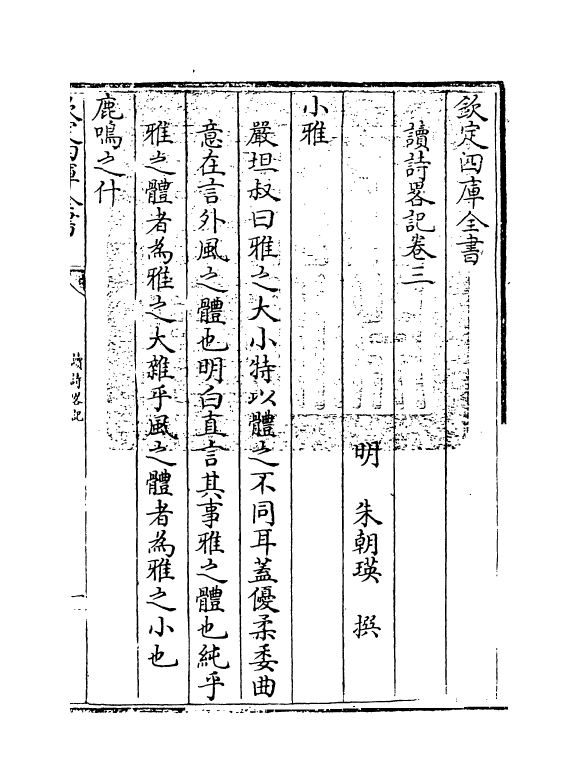 欽定四庫全書
讀詩畧記卷三
明 朱朝瑛 撰
小雅
嚴坦叔曰雅之大小特以體之不同耳蓋優柔委曲
意在言外風之體也明白直言其事雅之體也純乎
雅之體者為雅之大雜乎風之體者為雅之小也
鹿鳴之什
欽定四庫全書
讀詩畧記
一